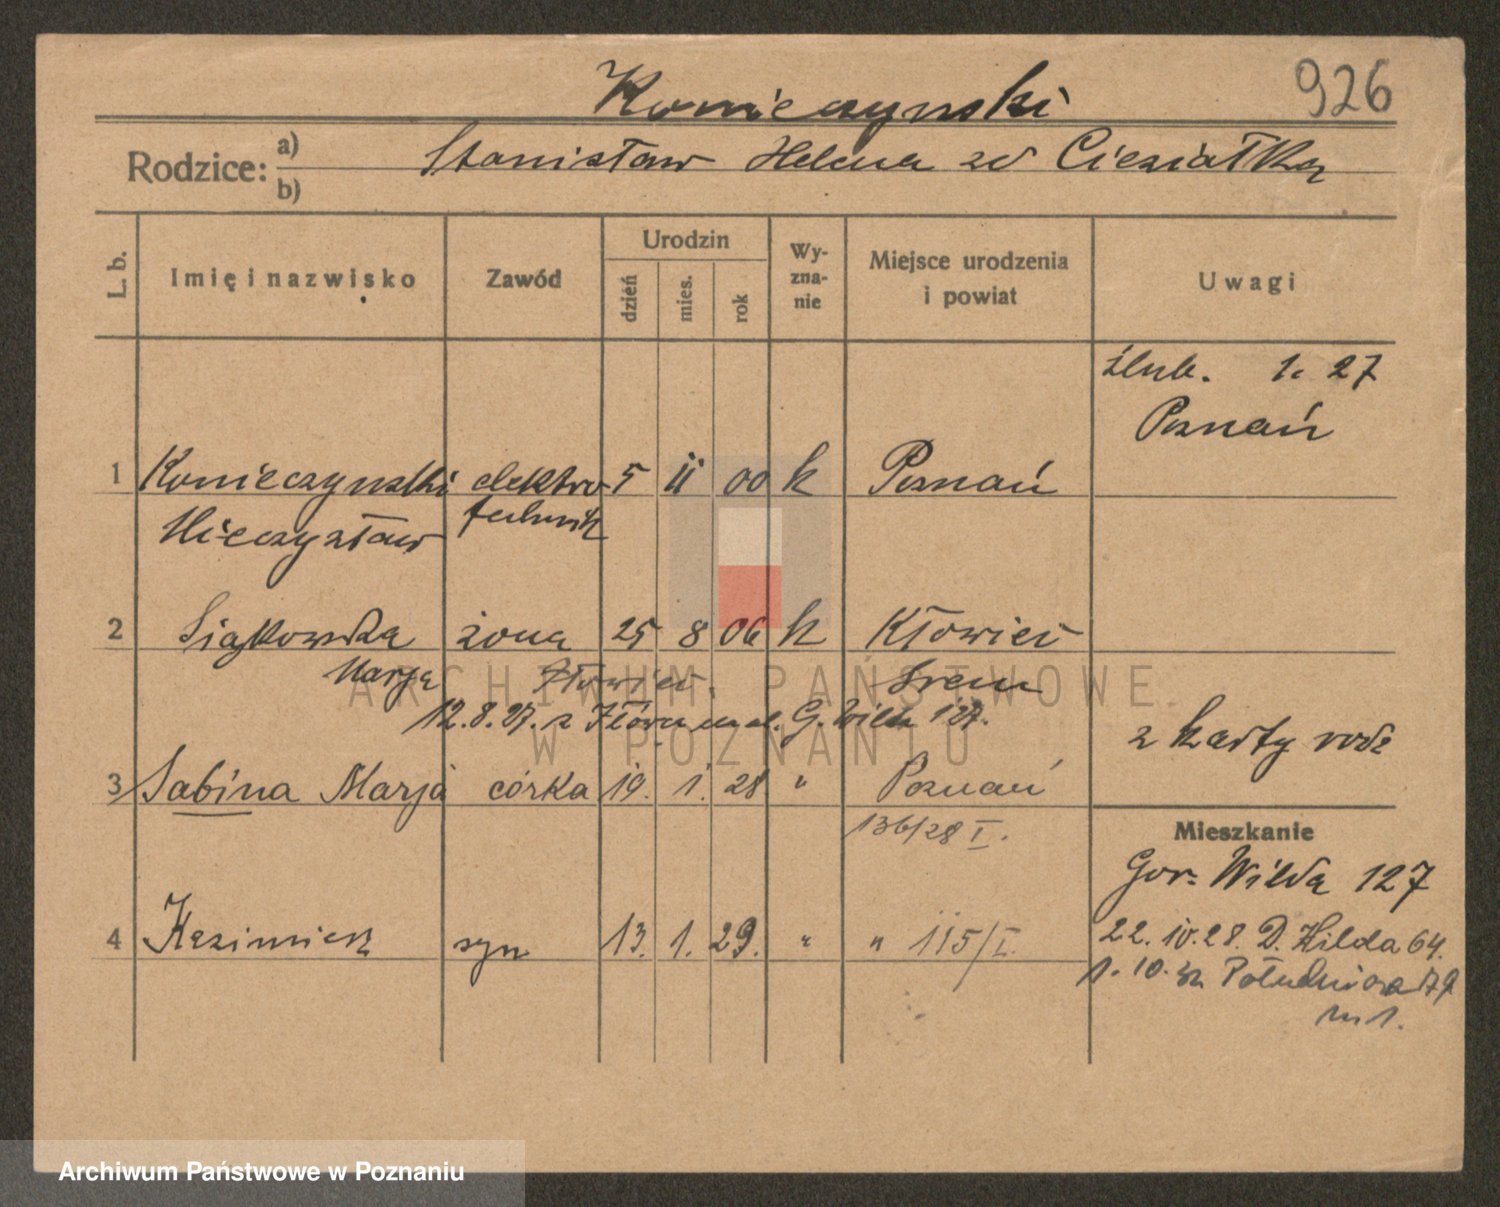 926
Konieczynski
Rodzice: a) b)
Stanisław Helena zd Ciesiałka
L. b.
Imię i nazwisko
Zawód
Urodzin
dzień
mies.
rok
Wy-
zna-
nie
Miejsce urodzenia
i powiat
Uwagi
ślub. 1. 27
Poznań
1 Konieczynski elektro 5 II 00 k Poznań
Mieczysław technik
2 żona 25 8 06 k
Marja
12.8.27. z G. Wilda 127.
z karty rodz
3 Sabina Marja córka 19. 1. 28 " Poznań
136/28 I.
Mieszkanie
Gór. Wilda 127
4 Kazimierz syn 13. 1. 29. " " 115/I.
22. IV. 28. D. Wilda 64.
1. 10. Południowa
m 1.
ARCHIWUM PAŃSTWOWE
W POZNANIU
Archiwum Państwowe w Poznaniu